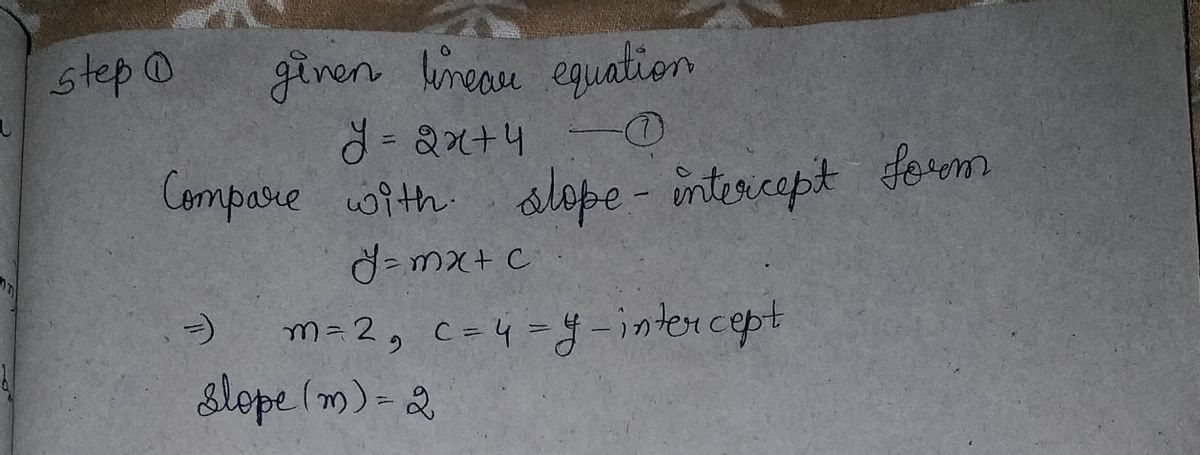 step ① given linear equation
y = 2x+4 —①
Compare with slope-intercept form
y=mx+c
⇒) m=2, c=4=y-intercept
slope(m)=2